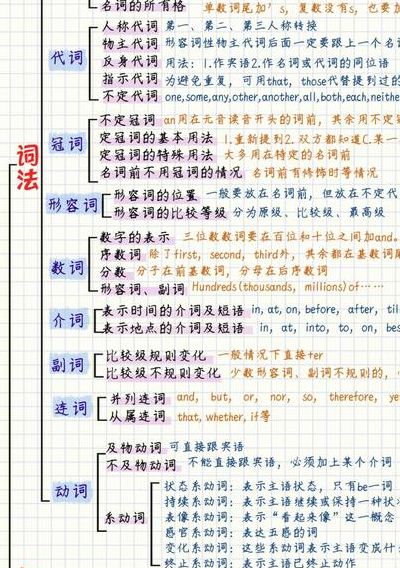 名词的所有格 单数词尾加's, 复数没有s, 也要加
代词
人称代词 第一、第二、第三人称转换
物主代词 形容词性物主代词后面一定要跟上一个名词
反身代词 用法:1.作宾语2.作名词或代词的同位语
指示代词 为避免重复,可用that, those代替提到过的
不定代词 one,some,any,other,another,all,both,each,neithe
冠词
不定冠词 an用在元音读音开头的词前,其余用不定
定冠词的基本用法 1.重新提到2.双方都知道C.某一
定冠词的特殊用法 大多用在特定的名词前
名词前不用冠词的情况 名词前有修饰时等情况
词法
形容词
形容词的位置 一般要放在名词前,但放在不定代
形容词的比较等级 分为原级、比较级、最高级
数词
数字的表示 三位数数词要在百位和十位之间加and。
序数词 除了first, second, third外,其余都在基数词尾
分数 分子在前基数词,分母在后序数词
形容词、副词 Hundreds(thousands, millions)of……
介词
表示时间的介词及短语 in, at, on, before, after, til
表示地点的介词及短语 in, at, into, to, on, bes
副词
比较级规则变化 一般情况下直接+er
比较级不规则变化 少数形容词、副词不规则的,
连词
并列连词 and, but, or, nor, so, therefore, ye
从属连词 that, whether, if等
动词
及物动词 可直接跟宾语
不及物动词 不能直接跟宾语,必须加上某个介词
系动词
状态系动词:表示主语状态,只有be一词
持续系动词:表示主语继续或保持一种状
表像系动词:表示“看起来像”这一概念
感官系动词:表达五感的词
变化系动词:这些系动词表示主语变成什
终止系动词:表示主语已终止动作